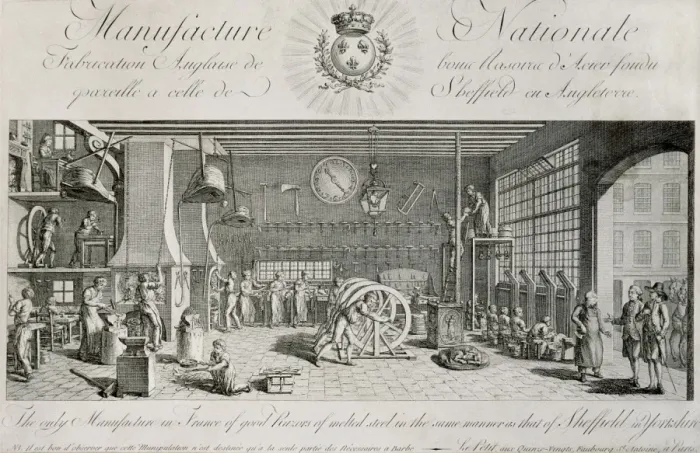 Manufacture Nationale
Fabrication Anglaise de bons Rasoirs d'Acier fondu
pareille a celle de Sheffield en Angleterre.
The only Manufacture in France of good Razors of melted steel in the same manner as that of Sheffield in Yorkshire
il est bon d'observer que cette Manipulation n'est destinée qu'a la seule partie des Rasoirs a Barbe
Le Petit, aux Quinze-Vingts, Faubourg St Antoine, à Paris